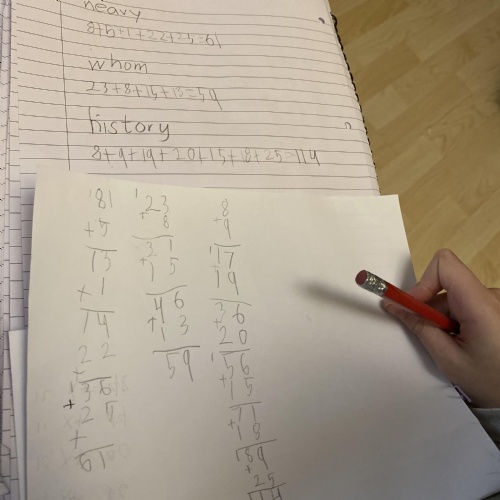 heavy
8+5+1+22+25=61
whom
23+8+15+13=59
history
8+9+19+20+15+18+25=114
81
+5
13
+1
14
22
36
+
61
23
+8
31
+15
46
+13
59
8
+9
17
19
36
20
56
+15
71
+18
89
+25